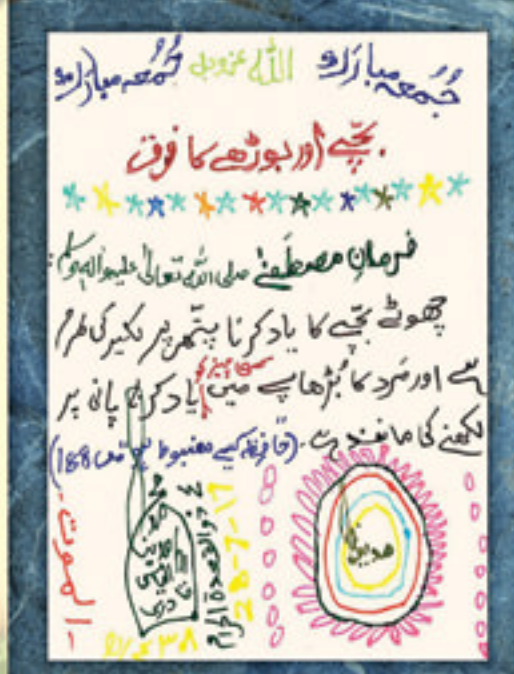 جُمُعہ مبارک اللہ عزوجل جُمُعہ مبارک
بچّے اور بوڑھے کا فرق
فرمانِ مصطفےٰ صلی اللہ تعالیٰ علیہ والہ وسلم:
چھوٹے بچّے کا یاد کرنا پتّھر پر لکیر کی طرح
ہے اور مَرد کا بُڑھاپے میں کسی چیز کو یاد کرنا پانی پر
لکھنے کی مانند ہے۔ (حافظہ کیسے مضبوط ہو ص 188)
مدینہ
الموت